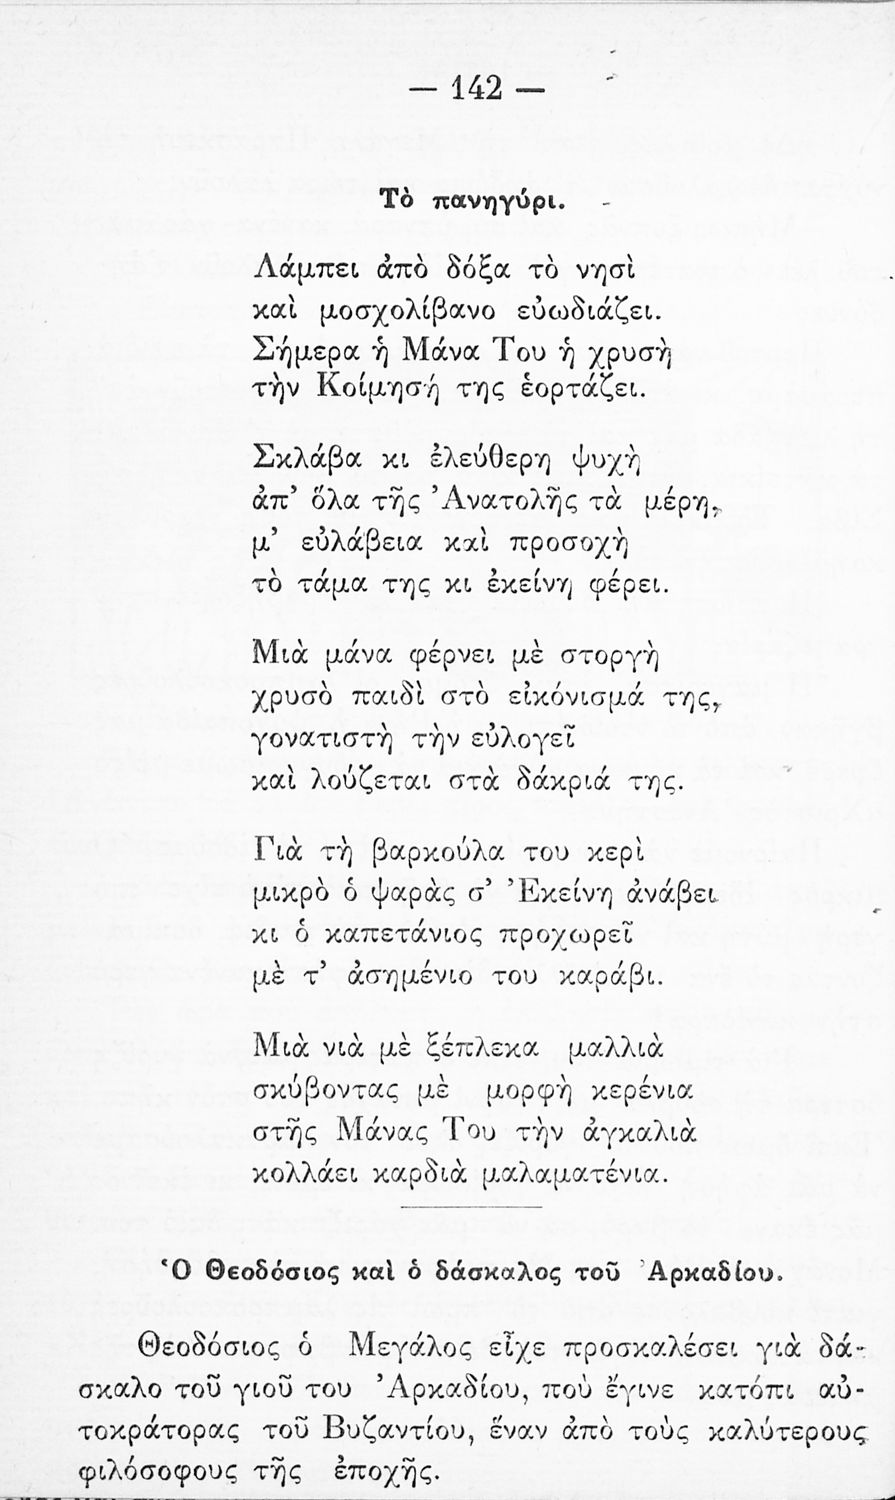 — 142 —
Τὸ πανηγύρι.
Λάμπει ἀπὸ δόξα τὸ νησὶ
καὶ μοσχολίβανο εὐωδιάζει.
Σήμερα ἡ Μάνα Του ἡ χρυσὴ
τὴν Κοίμησή της ἑορτάζει.
Σκλάβα κι ἐλεύθερη ψυχὴ
ἀπ’ ὅλα τῆς Ἀνατολῆς τὰ μέρη,
μ’ εὐλάβεια καὶ προσοχὴ
τὸ τάμα της κι ἐκείνη φέρει.
Μιὰ μάνα φέρνει μὲ στοργὴ
χρυσὸ παιδὶ στὸ εἰκόνισμά της,
γονατιστὴ τὴν εὐλογεῖ
καὶ λούζεται στὰ δάκριά της.
Γιὰ τὴ βαρκούλα του κερὶ
μικρὸ ὁ ψαρὰς σ’ Ἐκείνη ἀνάβει
κι ὁ καπετάνιος προχωρεῖ
μὲ τ’ ἀσημένιο του καράβι.
Μιὰ νιὰ μὲ ξέπλεκα μαλλιὰ
σκύβοντας μὲ μορφὴ κερένια
στῆς Μάνας Του τὴν ἀγκαλιὰ
κολλάει καρδιὰ μαλαματένια.
Ὁ Θεοδόσιος καὶ ὁ δάσκαλος τοῦ Ἀρκαδίου.
Θεοδόσιος ὁ Μεγάλος εἶχε προσκαλέσει γιὰ δά-
σκαλο τοῦ γιοῦ του Ἀρκαδίου, ποὺ ἔγινε κατόπι αὐ-
τοκράτορας τοῦ Βυζαντίου, ἕναν ἀπὸ τοὺς καλύτερους
φιλόσοφους τῆς ἐποχῆς.